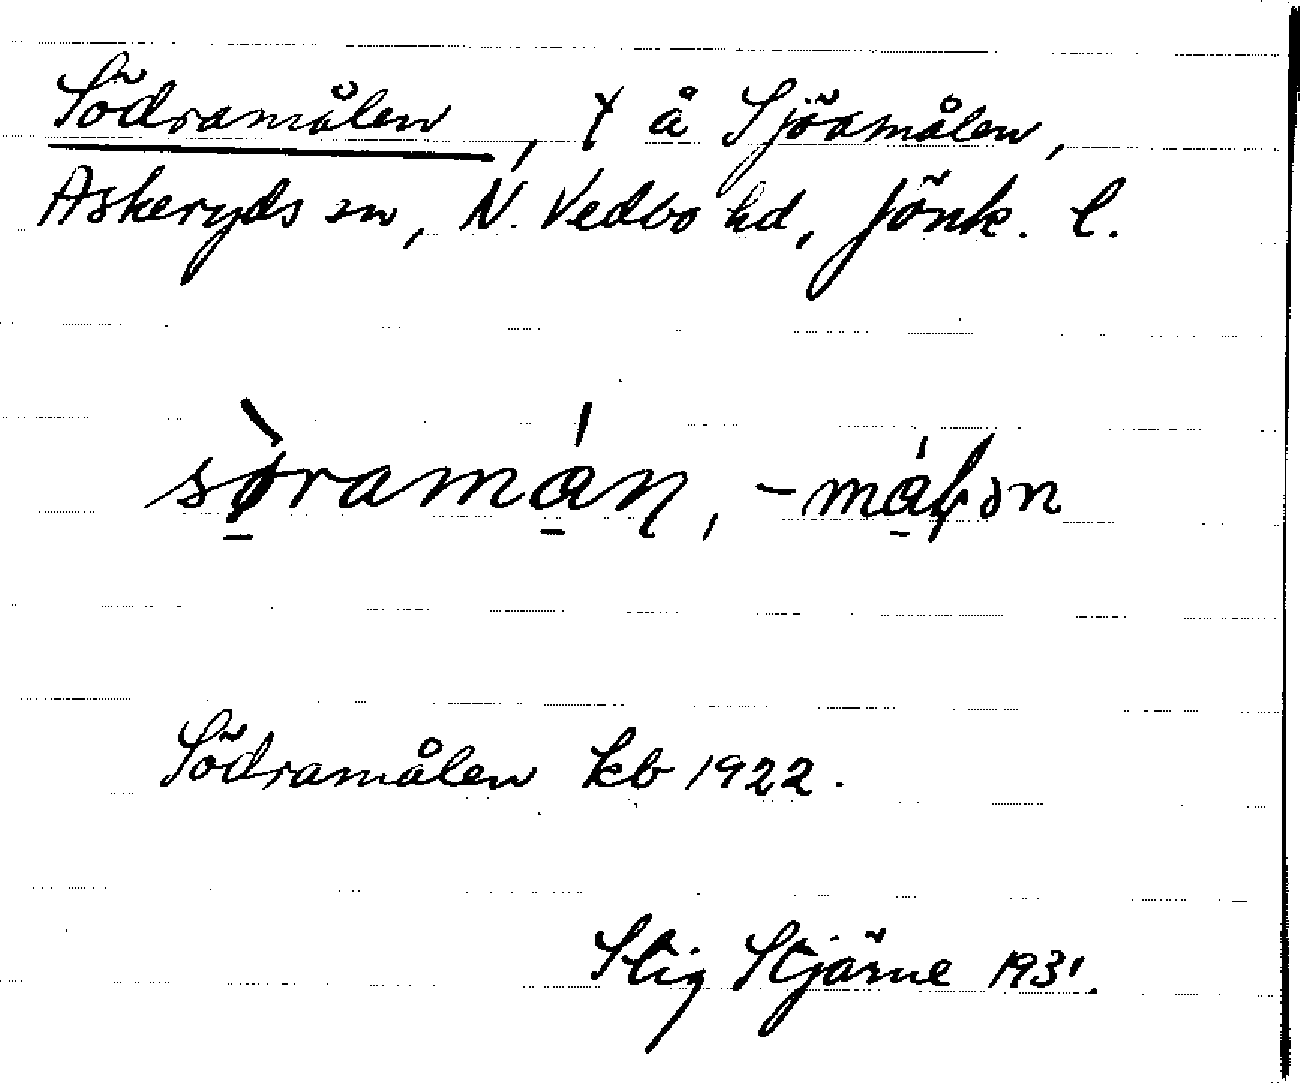 Södramålen, † å Sjöamålen,
Askeryds sn, N. Vedbo hd, Jönk. l.
sø̱̀ramá̱n, -má̱ɫən
Södramålen kb 1922.
Stig Stjärne 1931.